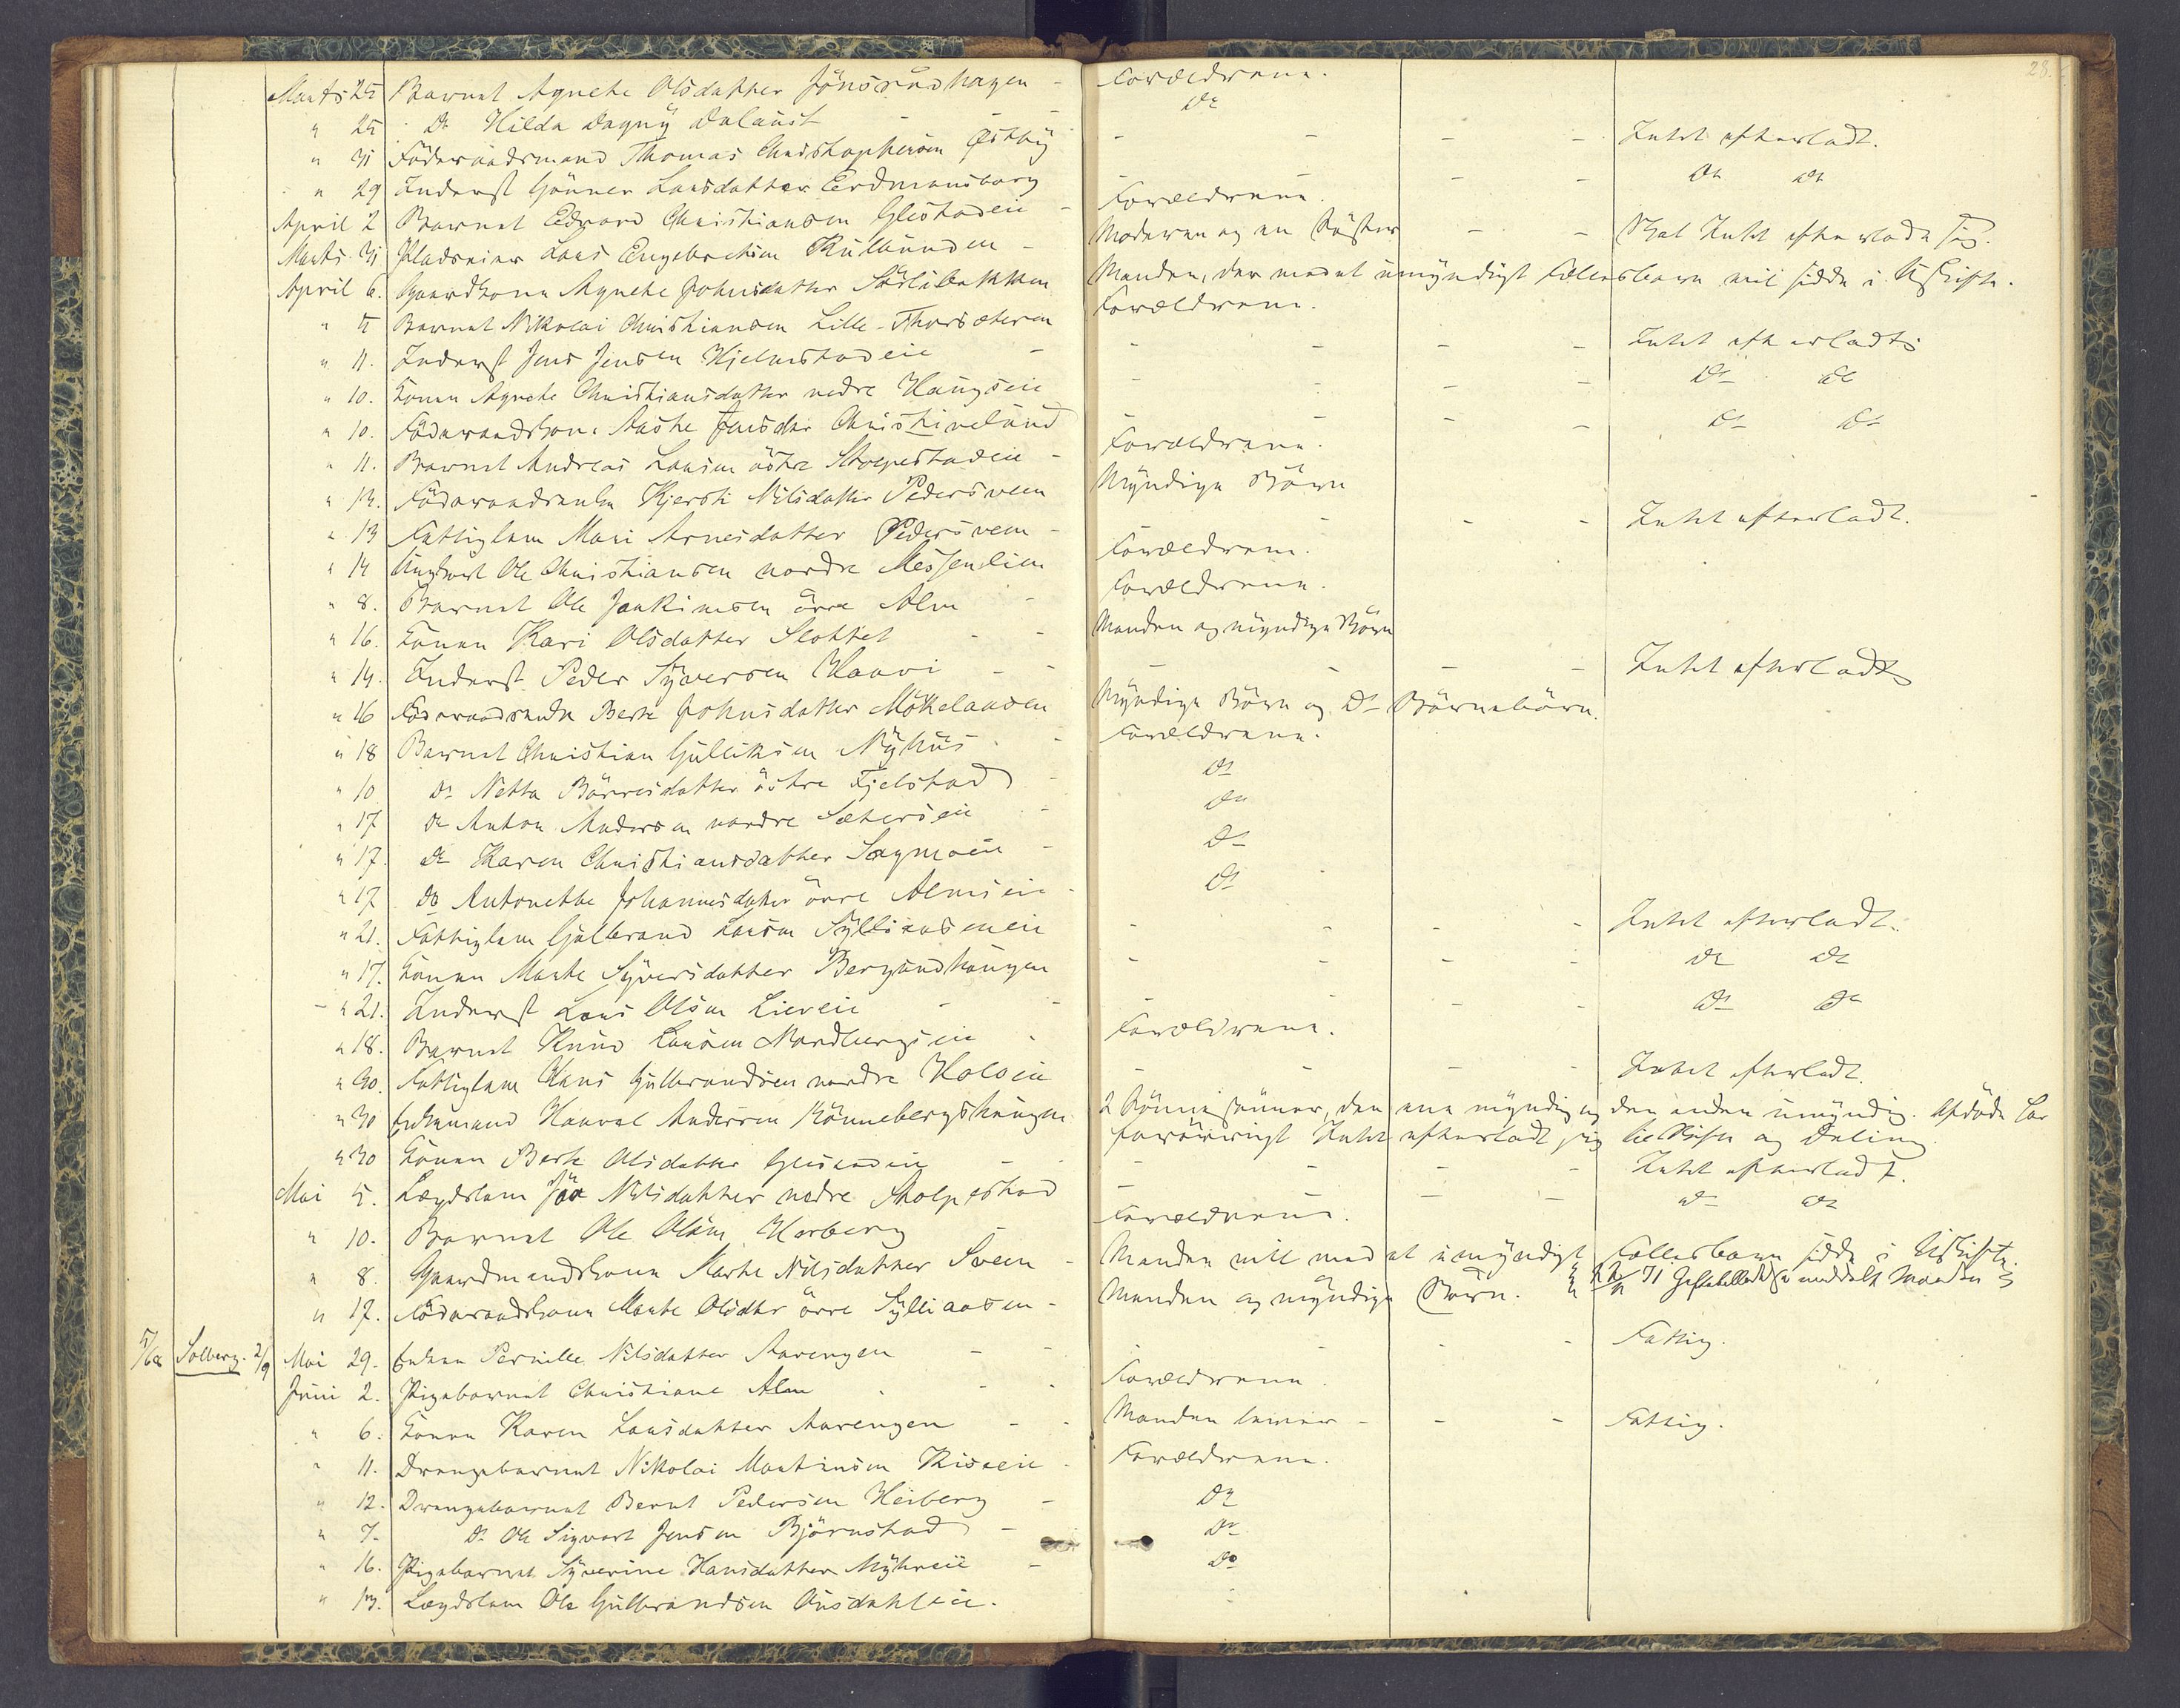 28.
Marts 25 Barnet Agnethe Olsdatter Jönsrudhagen - Forældrene.
" 25 Do Hilda Dagny Dalaust - Do
" 31 Föderaadsmand Thomas Christophersen Östby - - - - Intet efterladt.
" 29 Inderst Gunner Larsdatter Eerdmansborg - - - Do Do
April 2 Barnet Edvard Christiansen Glestadeie - Forældrene.
Marts 31 Pladseier Lars Engebrethsen Rulbunden - Moderen og en Söster - - Skal Intet efterlade sig.
April 6. Gaardkone Agnethe Johnsdatter Sörlibakken Manden, der med et umyndigt Fællesbarn vil sidde i Uskifte.
" 5 Barnet Nikolai Christiansen Lille-Thorsæteren Forældrene.
" 11. Inderst Jens Jensen Hjelmstadeie - - - - - Intet efterladt.
" 10. Konen Agnethe Christiansdatter nedre Haugseie - - - - Do Do
" 10. Föderaadskone Aaste Jensdtr Christinelund - - - - Do Do
" 11. Barnet Andreas Larsen östre Skolpestadeie - Forældrene.
" 13. Föderaadsenke Kjersti Nilsdatter Pedersveen Myndige Börn
" 13 Fattiglem Mari Arnesdatter Pedersveen - - - - Intet efterladt.
" 14 Ole Christiansen nordre Messenlien Forældrene.
" 8. Barnet Ole Joakimsen övre Alm - Forældrene.
" 16. Konen Kari Olsdatter Slottet - - Manden og myndige Börn
" 14. Inderst Peder Syversen Haavi - - - - - - Intet efterladt
" 16 Föderaadsenke Berte Johnsdatter Mökelaasen Myndige Börn og Do Börnebörn.
" 18 Barnet Christian Gulliksen Nyhus - - Forældrene.
" 10 Do Netta Börresdatter östre Fjelstad - Do
" 17 Do Anton Andersen nordre Sæterseie - Do
" 17. Do Karen Christiansdatter Sagmoeie - Do
" 17 Do Antonette Johannesdatter övre Almseie - Do
" 21. Fattiglem Gulbrand Larsen Sylliaaseneie - - - - Intet efterladt.
" 17. Konen Marthe Syversdatter Bergsundhaugen - - - - Do Do
" 21. Inderst Lars Olsen Liereie - - - - - - Do Do
" 18. Barnet Knud Larsen Nordbergseie - Forældrene.
" 30. Fattiglem Hans Gulbrandsen nordre Holoeie - - - - Intet efterladt.
" 30 Enkemand Haavel Andersen Rönnebergshaugen 2 Sönnesönner, den ene myndig og den anden umyndig. Afdöde har
forövrigt Intet efterladt sig til Skifte og Deling.
" 30 Konen Berte Olsdatter - - - - - - Intet efterladt.
Mai 5. Lægdslem Nilsdatter nedre Skolpestad - - - Do Do
" 10. Barnet Ole Olsen Horberg Forældrene.
" 8. Gaardmandskonen Marte Nilsdatter Sveen - Manden vil med et umyndigt Fællesbarn sidde i Uskifte.
" 17. Föderaadskonen Marte Olsdtr övre Sylliaasen - Manden og myndige Börn.
5/6 Solberg. 2/9 Mai 29. Enken Pernille Nilsdatter Aarengen - - - - - Fattig.
Juni 2. Pigebarnet Christiane Alm - - - Forældrene.
" 6. Konen Karen Larsdatter Aarengen - - Manden lever - - - Fattig.
" 11. Drengebarnet Nikolai Martinsen Riseeie - Forældrene.
" 12. Drengebarnet Bernt Pedersen Heiberg - Do
" 7. Do Ole Sigvart Jensen Björnstad - Do
" 16. Pigebarnet Syverine Hansdatter Myhreeie - Do
" 13. Lægdslem Ole Gulbrandsen Ausdahleie.